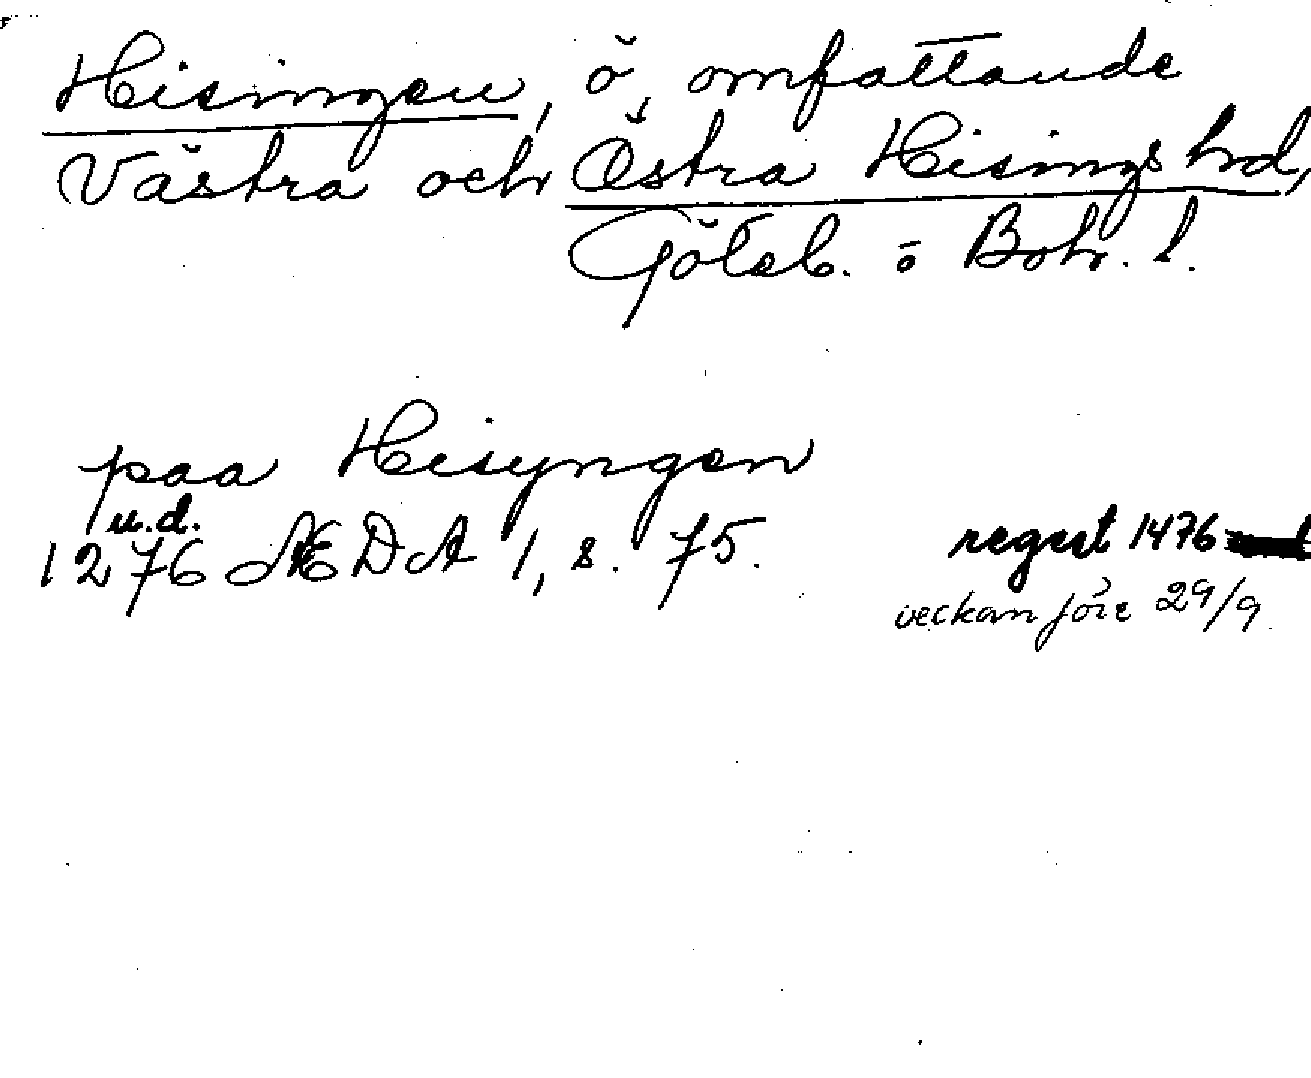 Hisingen, ö, omfattande
Västra och Östra Hisings hrd,
Göteb. o Boh. l.
paa Hisyngen
u.d.
1276 ÆDA 1, s. 75.
regest 1476
veckan före 29/9